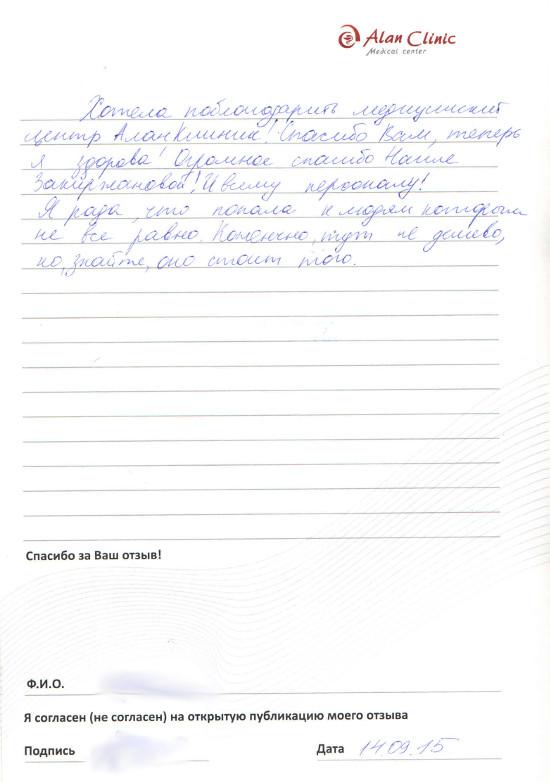 Alan Clinic
Medical center
Хотела поблагодарить медицинский
центр Алан Клиник! Спасибо Вам, теперь
я здорова! Огромное спасибо Наиле
Закиржановой! И всему персоналу!
Я рада, что попала к людям которым
не все равно. Конечно, тут не дешево,
но, знайте, оно стоит того.
Спасибо за Ваш отзыв!
Ф.И.О.
Я согласен (не согласен) на открытую публикацию моего отзыва
Подпись Дата 14.09.15